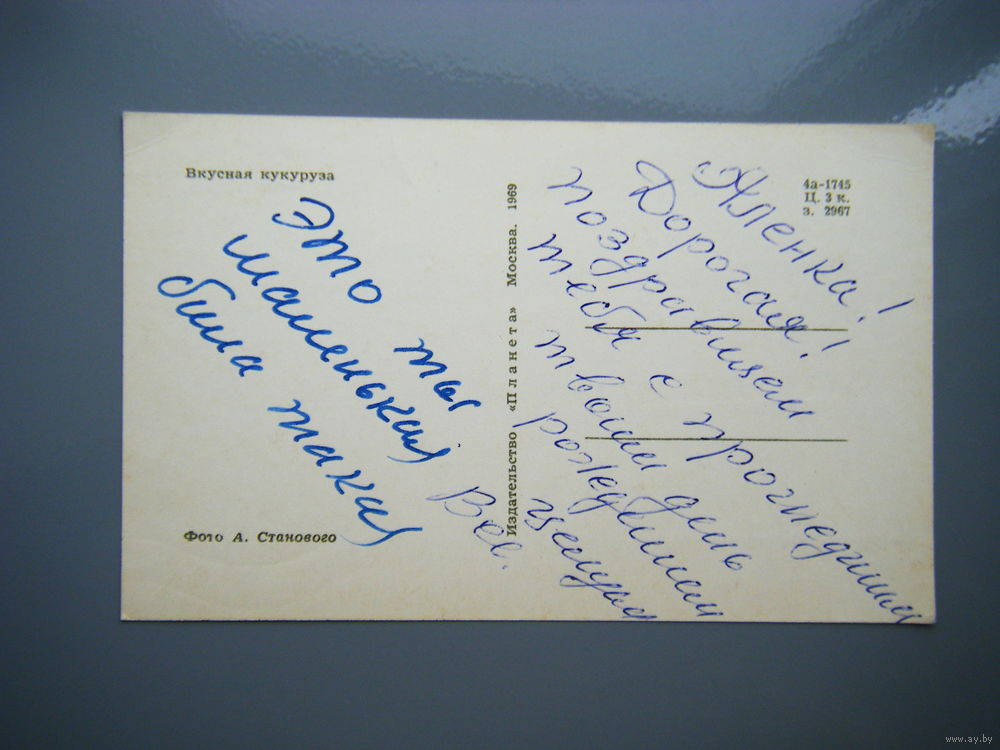 Вкусная кукуруза
Это ты
маленькая
была такая
Фото А. Станового
Издательство «Планета» Москва. 1969
4а-1745
Ц. 3 к.
з. 2967
Аленка!
Дорогая!
поздравляем
тебя с прошедшим
твоим днем
рождением
целуем
Все.
www.ay.by